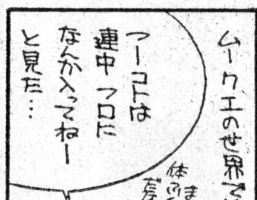 ムークエの世界で
アーコトは
連中フロに
なんか入ってねー
と見た…